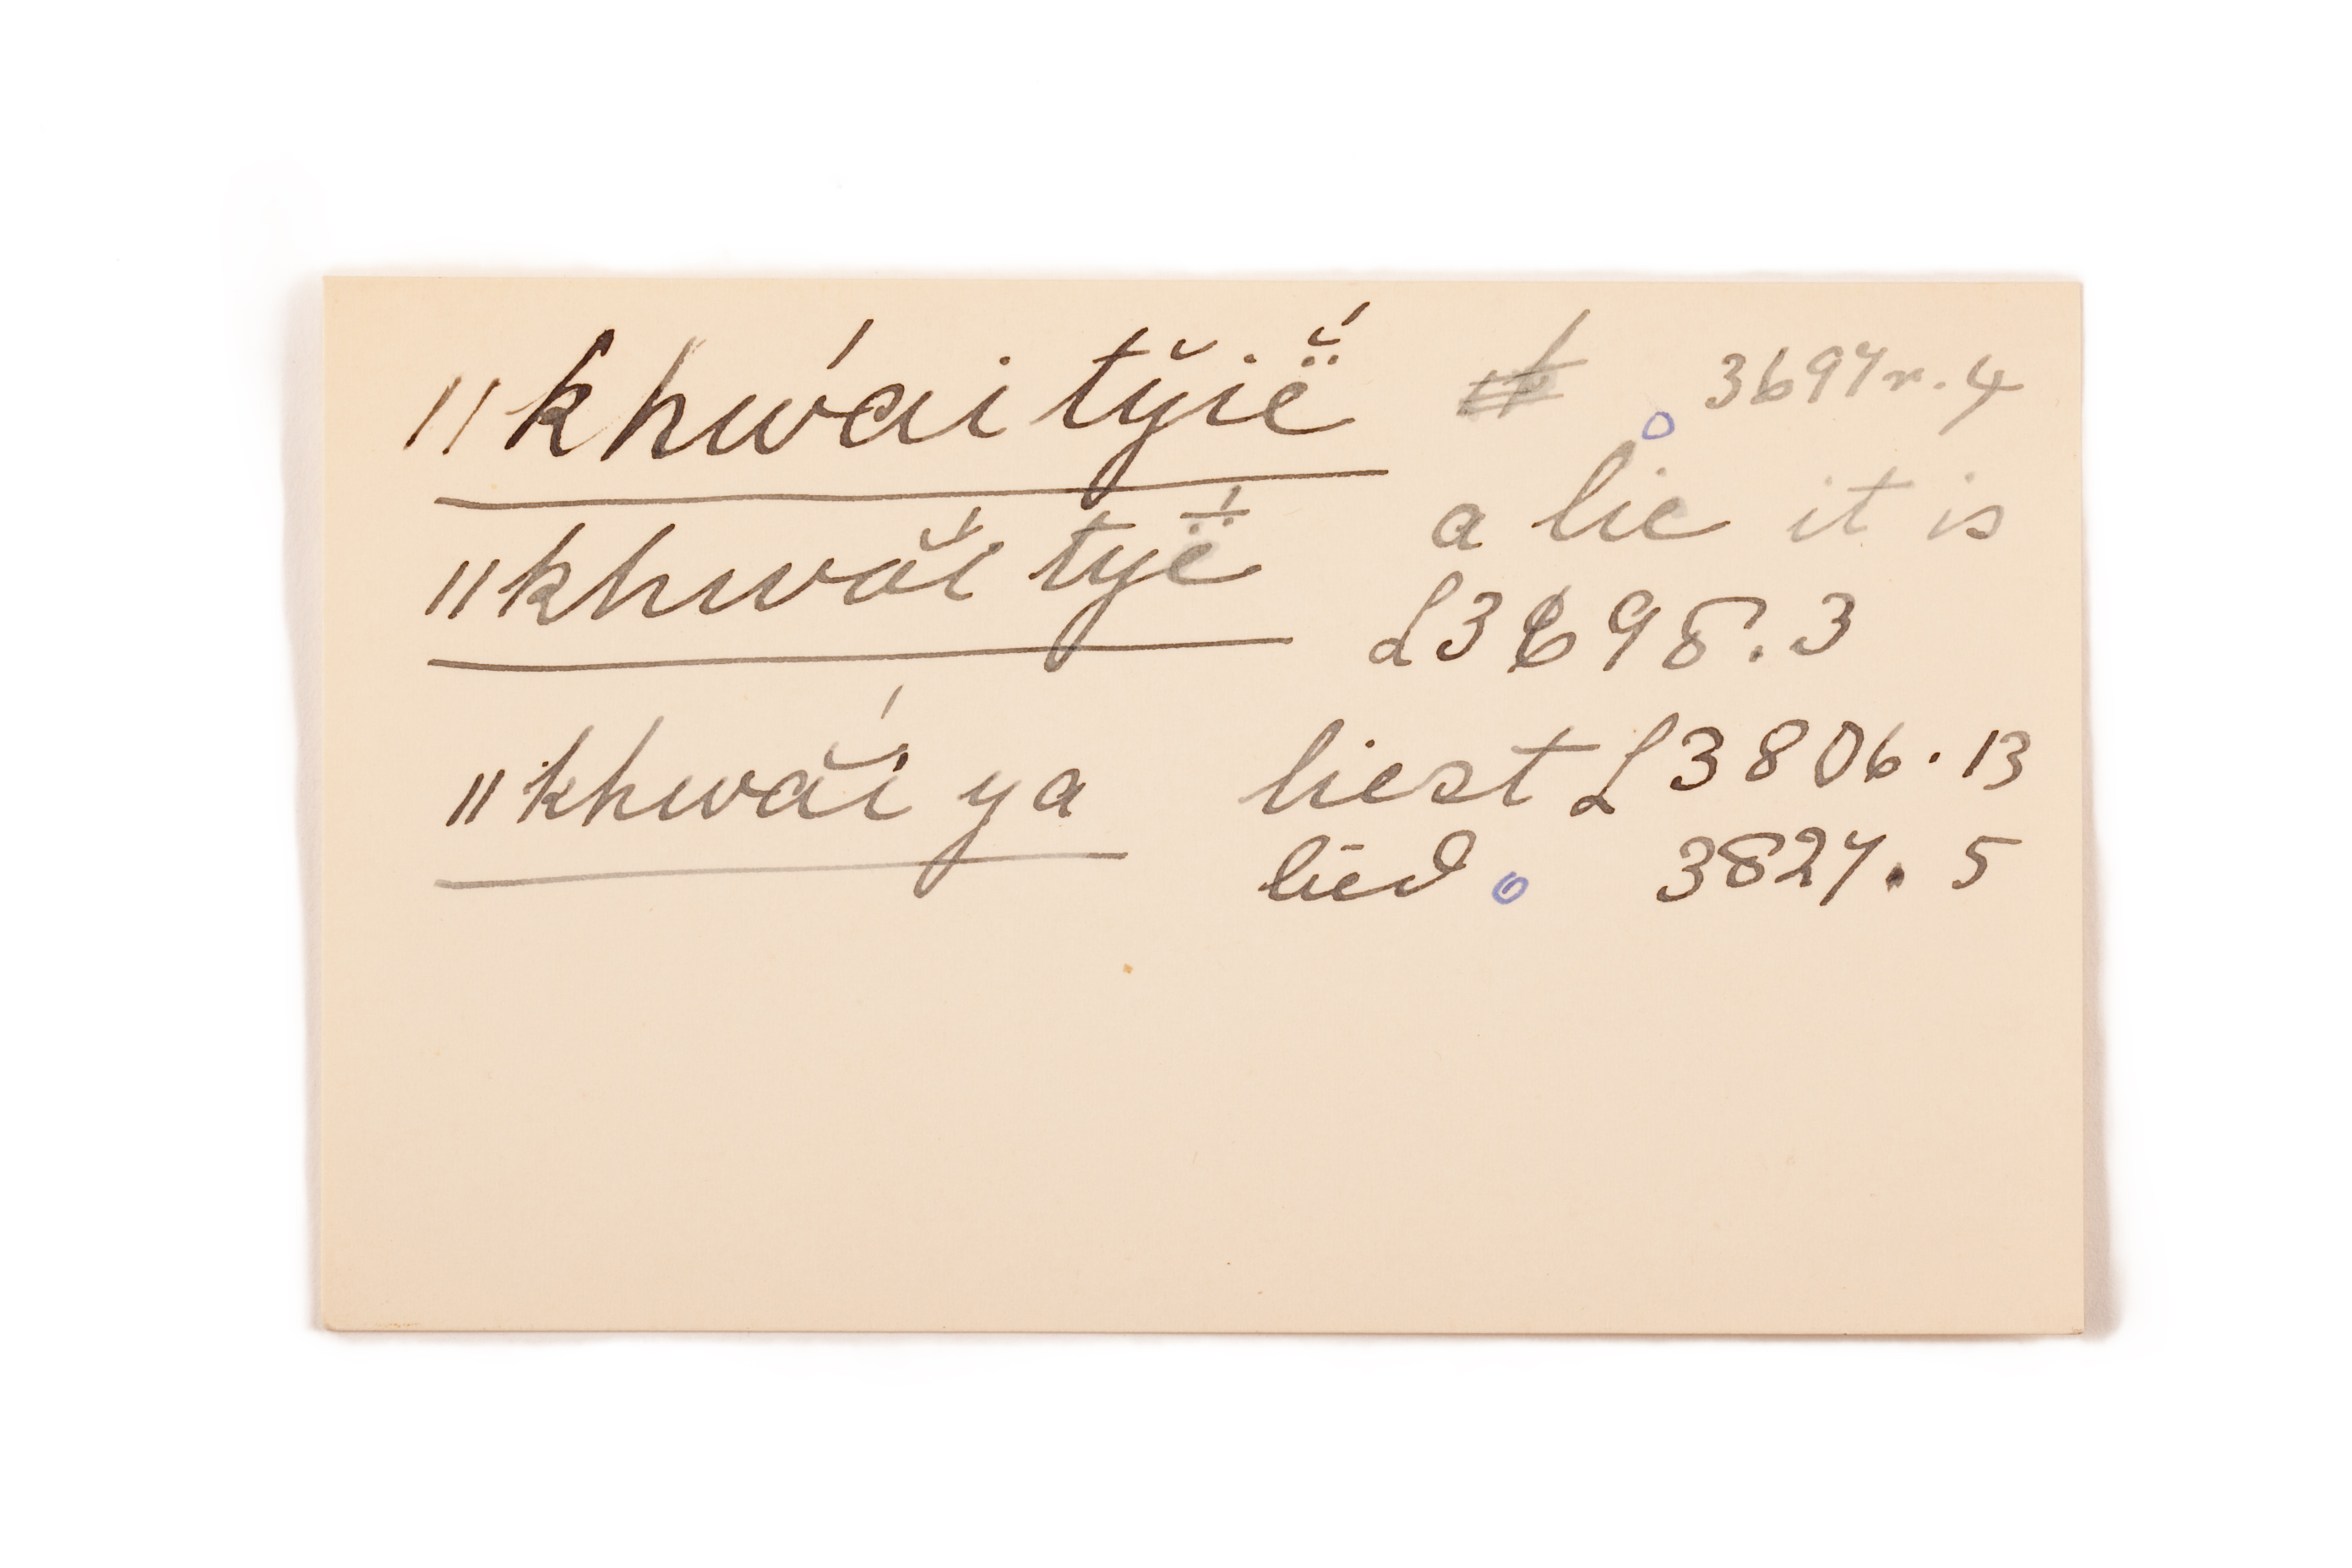 ǁkhwái ty̆ië̆́ 3697r.4
ǁkhwắi tyë̄́ a lie it is
L3698.3
ǁkhwắi ya liest L3806.13
lied. 3827.5